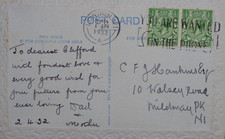 POST CARD
1932
YOU ARE WANTED
ON THE PHONE
To dearest Clifford
with fondest love &
every good wish for
your future from your
ever loving Dad
& Mother
2.4.32
10 Walsey Road
Mildmay Pk
N1